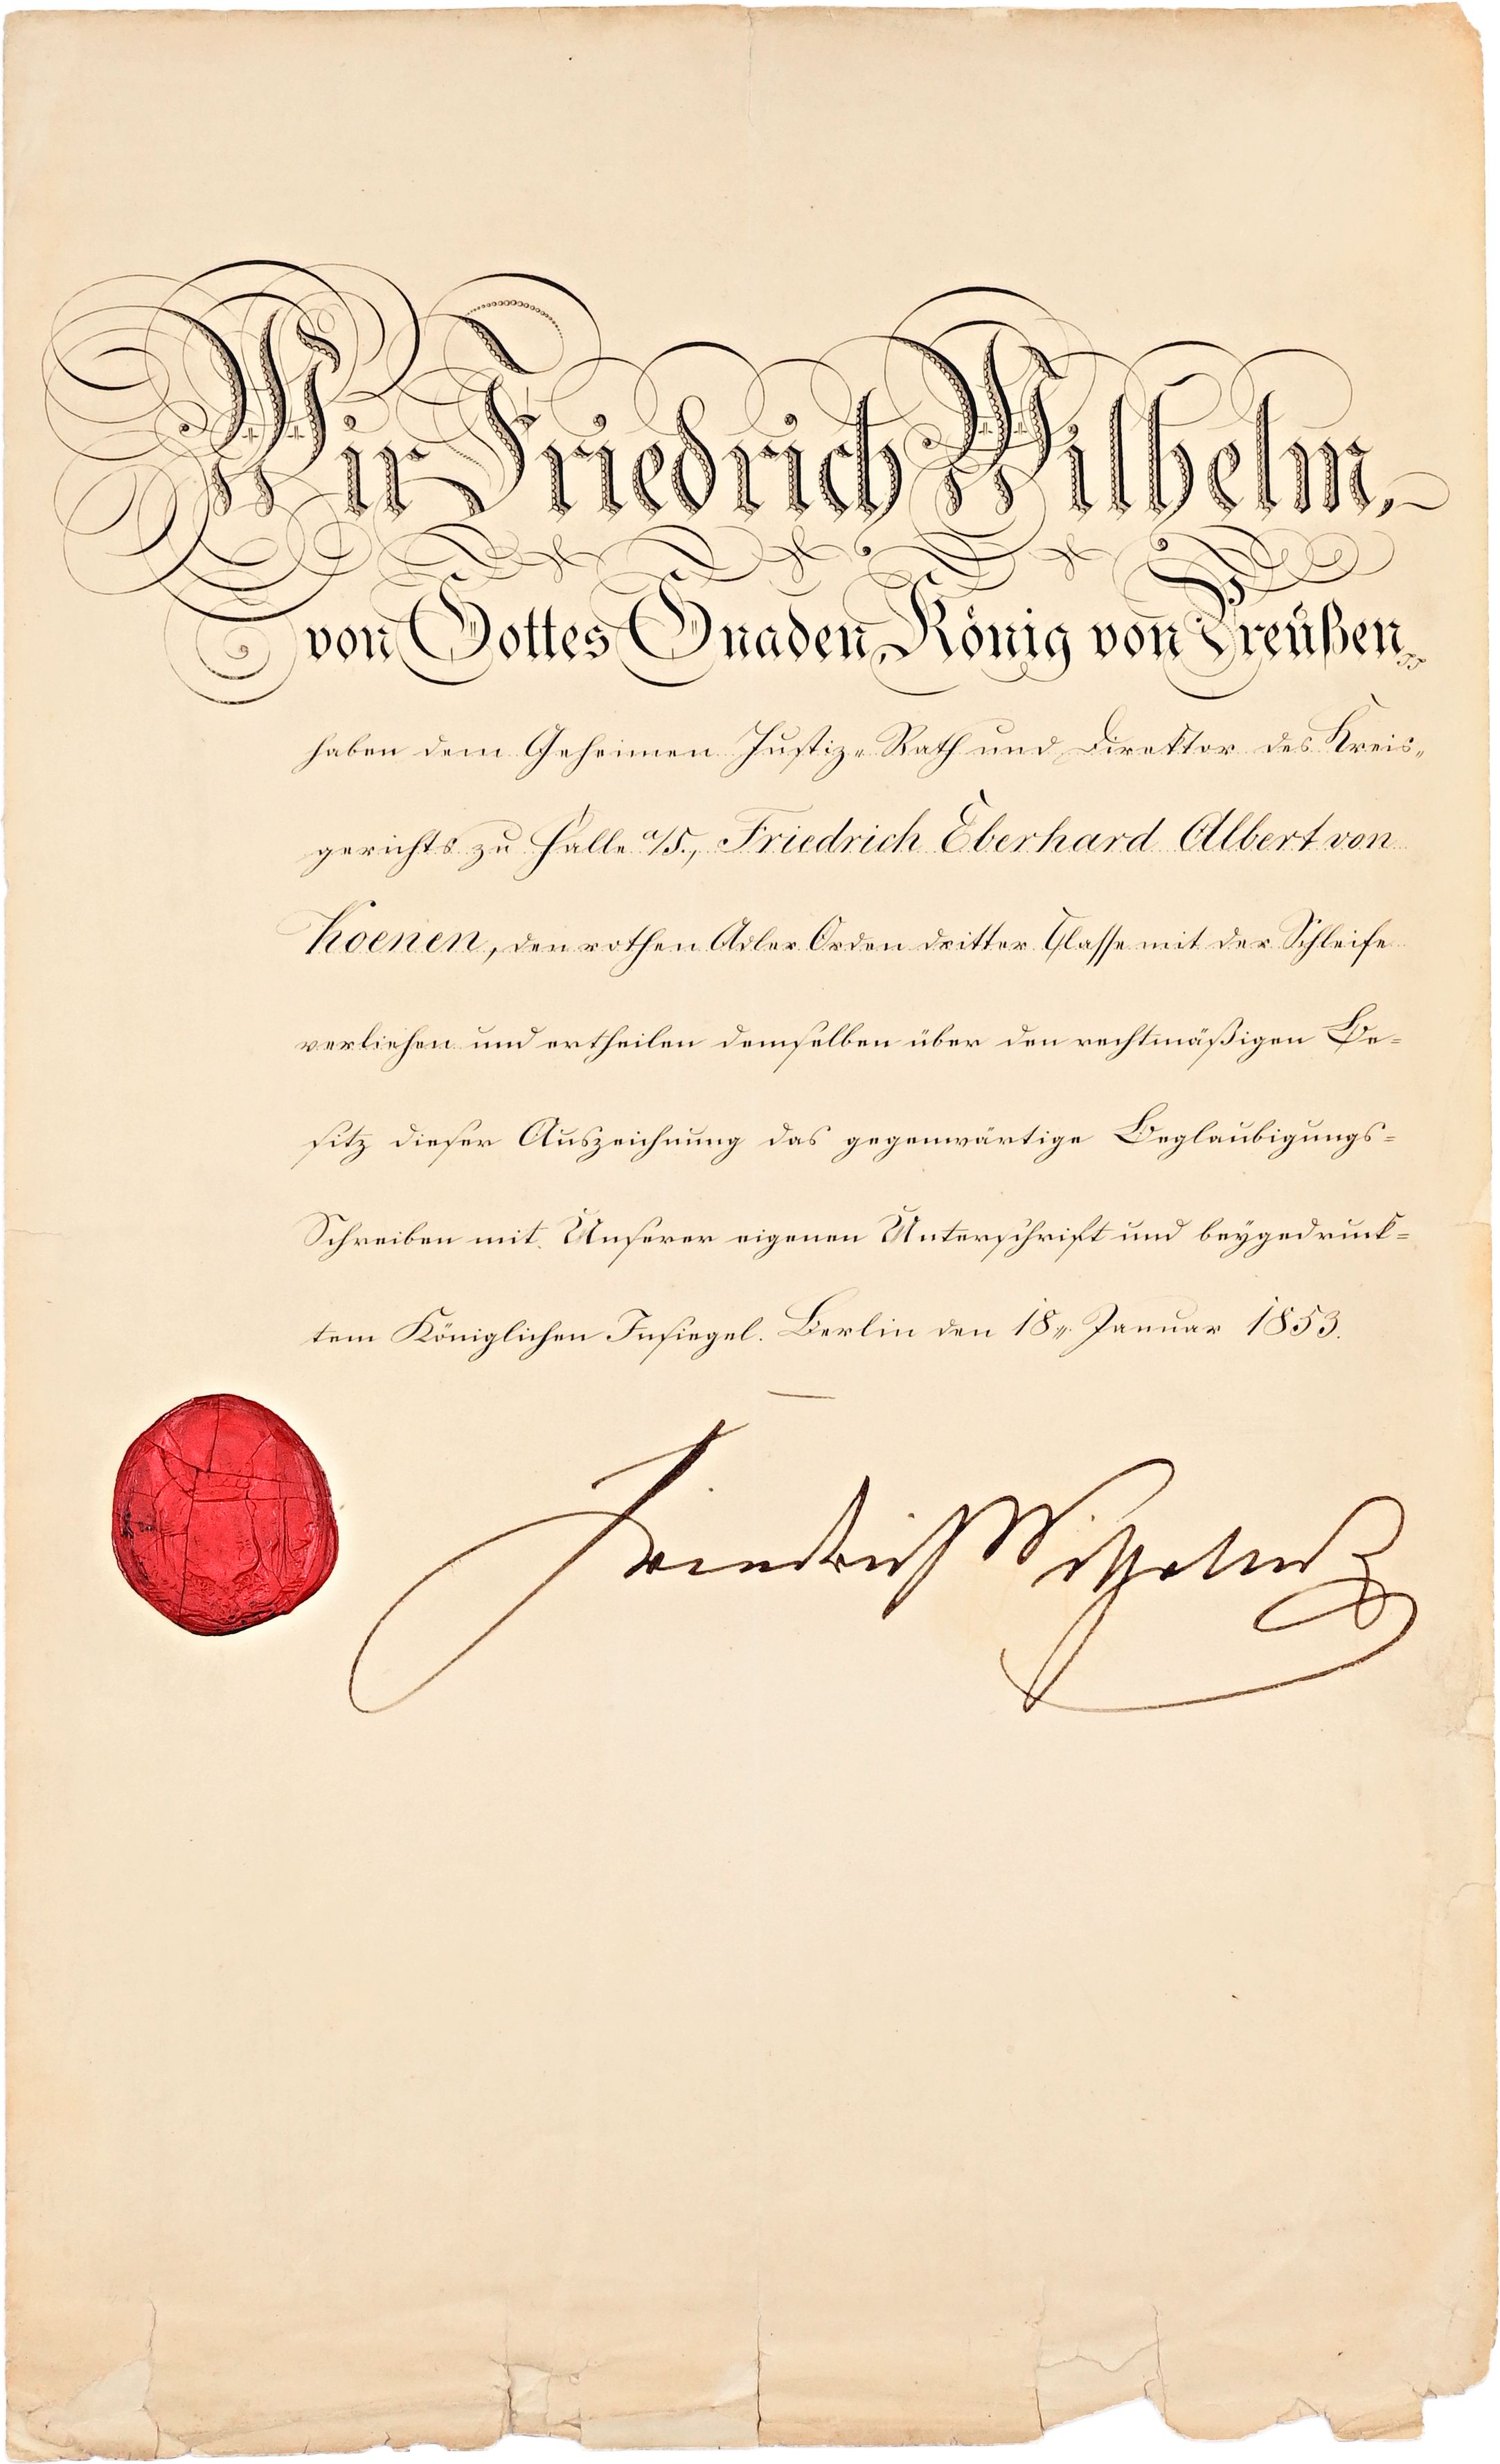 Wir Friedrich Wilhelm,
von Gottes Gnaden, König von Preußen
haben dem Geheimen Justiz-Rath und Direktor des Kreis-
gerichts zu Halle a/S., Friedrich Eberhard Albert von
Koenen, den rothen Adler Orden dritter Classe mit der Schleife
verliehen und ertheilen demselben über den rechtmäßigen Be-
sitz dieser Auszeichnung das gegenwärtige Beglaubigungs-
Schreiben mit Unserer eigenen Unterschrift und beygedruck-
tem Königlichen Insiegel. Berlin den 18. Januar 1853.
Friedrich Wilhelm